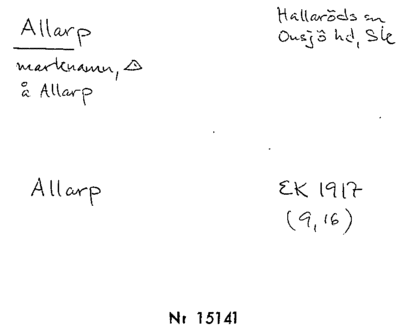 Allarp
Hallaröds sn
Onsjö hd, Sk
marknamn,
å Allarp
Allarp
EK 1917
(9, 16)
Nr 15141